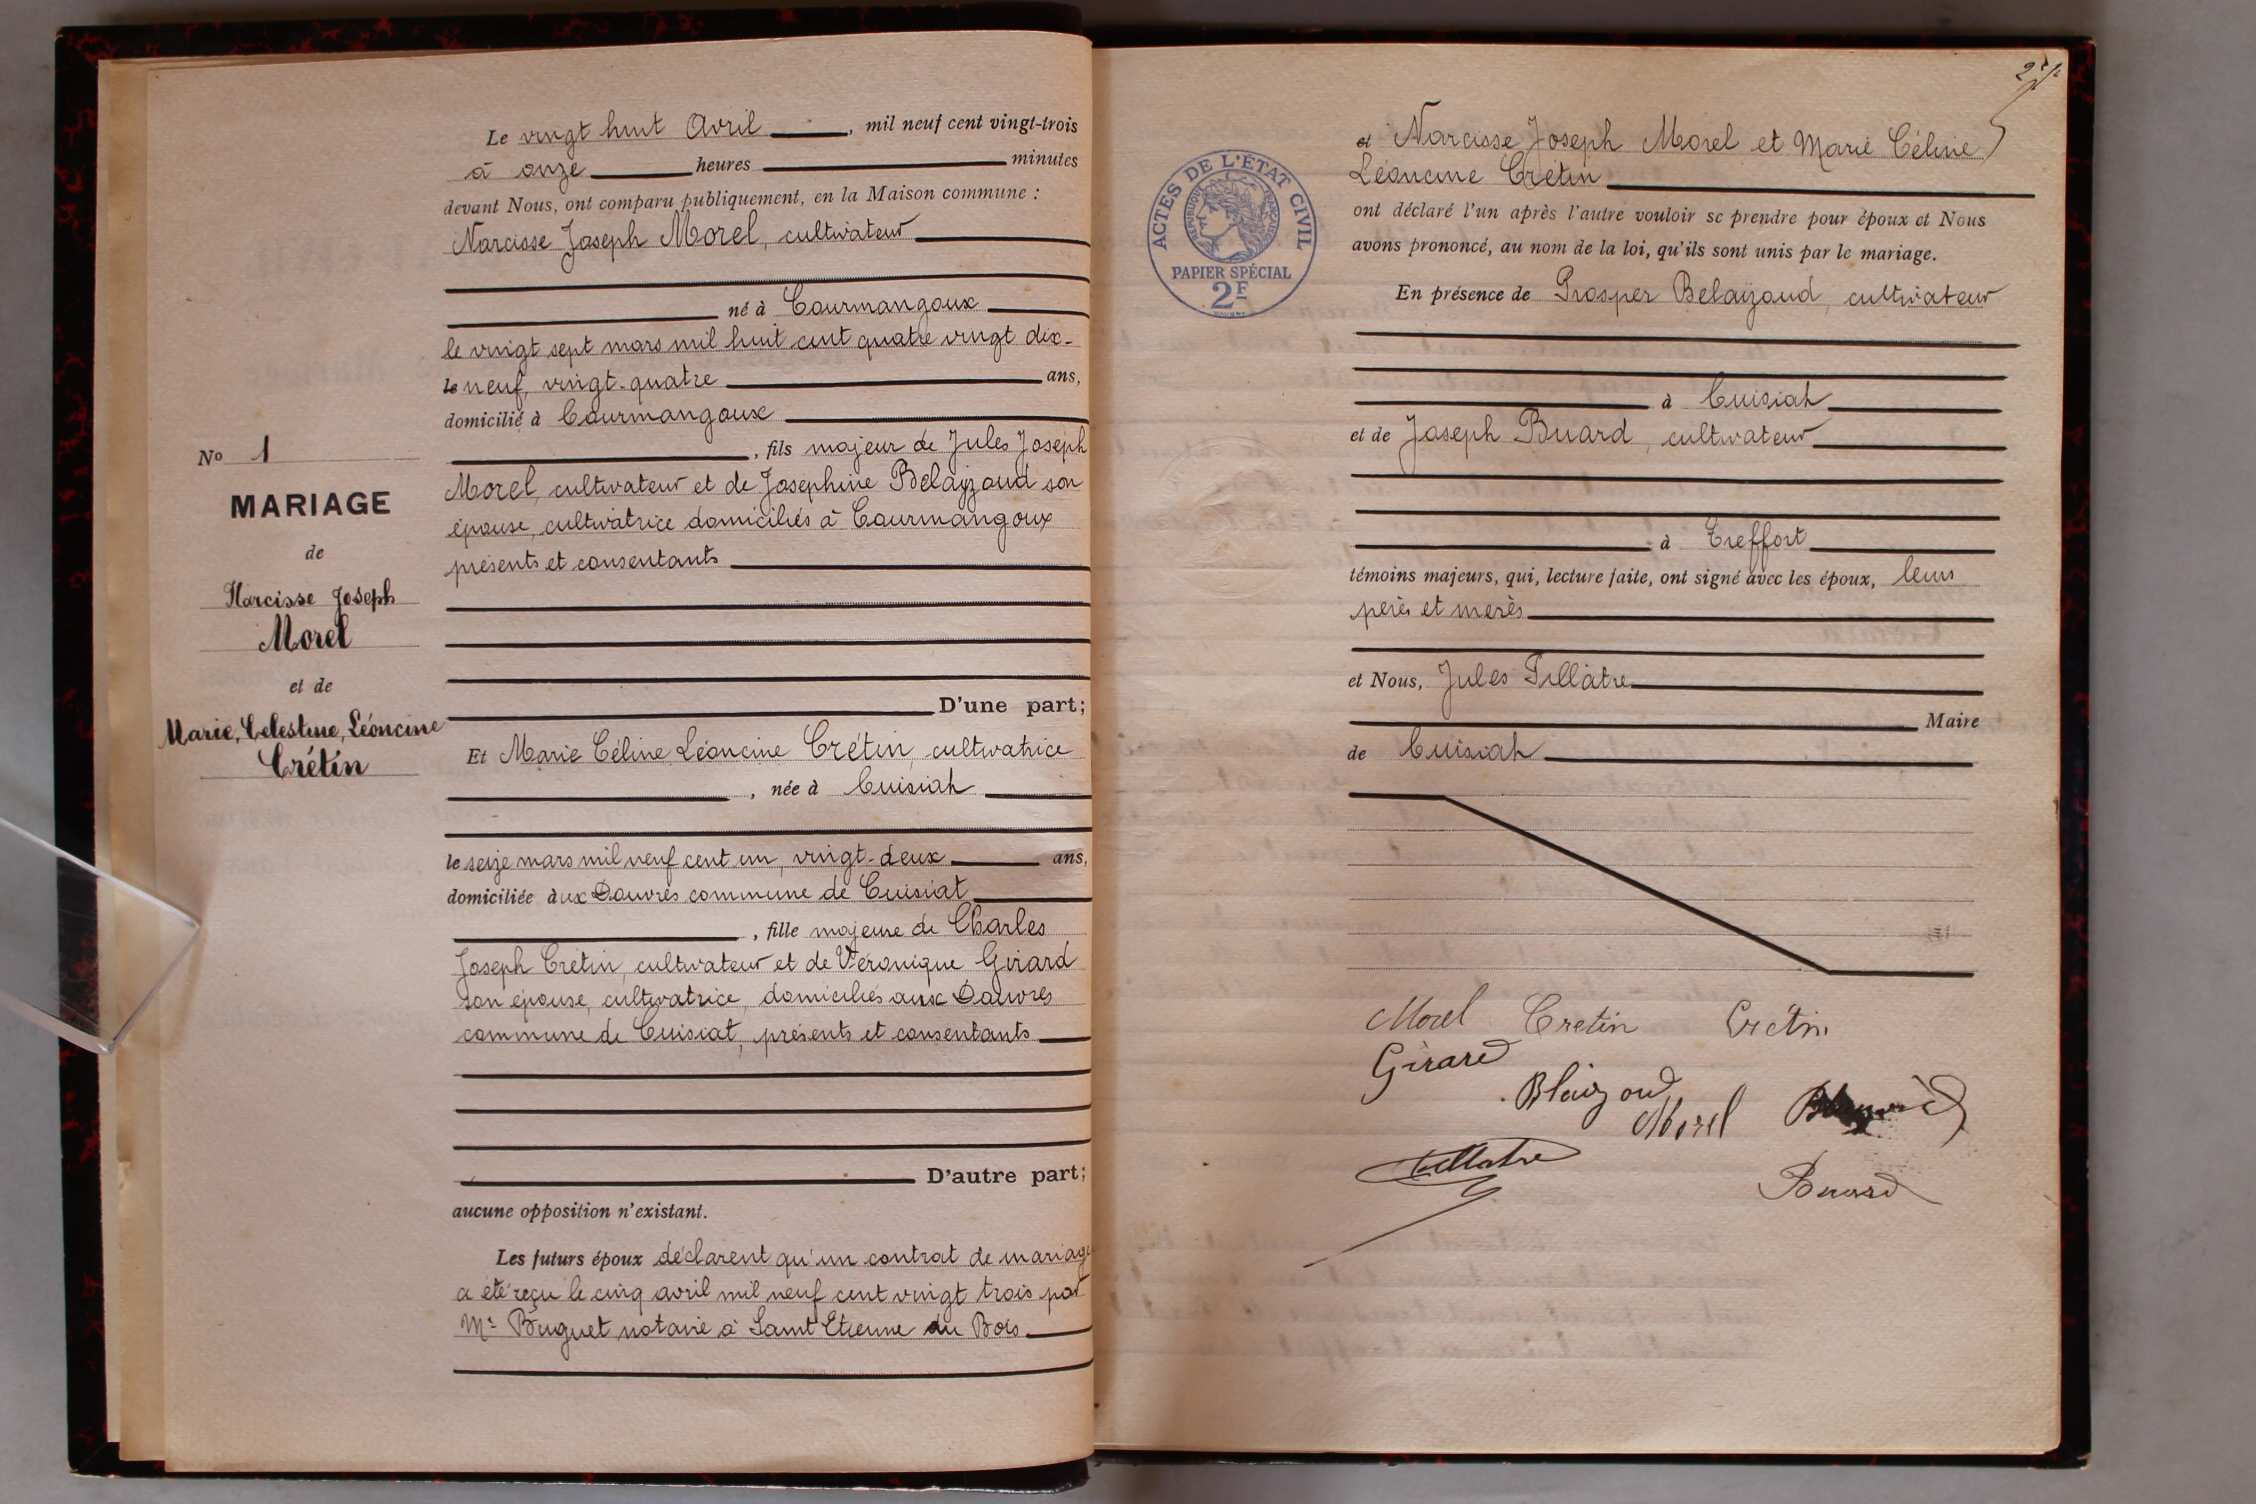 Le vingt huit Avril, mil neuf cent vingt-trois
à onze heures minutes
devant Nous, ont comparu publiquement, en la Maison commune :
Narcisse Joseph Morel, cultivateur
né à Courmangoux
le vingt sept mars mil huit cent quatre vingt dix-
le neuf, vingt-quatre ans,
domicilié à Courmangoux
, fils majeur de Jules Joseph
Morel, cultivateur et de Josephine Belayzoud son
épouse, cultivatrice domiciliés à Courmangoux
présents et consentants
No 1
MARIAGE
de
Narcisse Joseph
Morel
et de
Marie, Celestine, Léoncine
Crétin
D'une part;
Et Marie Céline Léoncine Crétin, cultivatrice
, née à Cuisiah
le seize mars mil neuf cent un, vingt-deux ans,
domiciliée àux Douvres commune de Cuisiat
, fille majeure de Charles
Joseph Crétin, cultivateur et de Véronique Girard
son épouse, cultivatrice, domiciliés aux Douvres
commune de Cuisiat, présents et consentants
D'autre part;
aucune opposition n'existant.
Les futurs époux déclarent qu'un contrat de mariage
a été reçu le cinq avril mil neuf cent vingt trois par
Me Buguet notaire à Saint Etienne du Bois
ACTES DE L'ÉTAT CIVIL
RÉPUBLIQUE FRANÇAISE
PAPIER SPÉCIAL
2F
et Narcisse Joseph Morel et Marie Céline
Léoncine Crétin
ont déclaré l'un après l'autre vouloir se prendre pour époux et Nous
avons prononcé, au nom de la loi, qu'ils sont unis par le mariage.
En présence de Prosper Belaÿzoud, cultivateur
à Cuisiah
et de Joseph Buard, cultivateur
à Treffort
témoins majeurs, qui, lecture faite, ont signé avec les époux, leurs
pères et merès
et Nous, Jules Pillâtre
Maire
de Cuisiah
Morel Cretin Crétin
Girard
Blaizoud
Morel
Buard